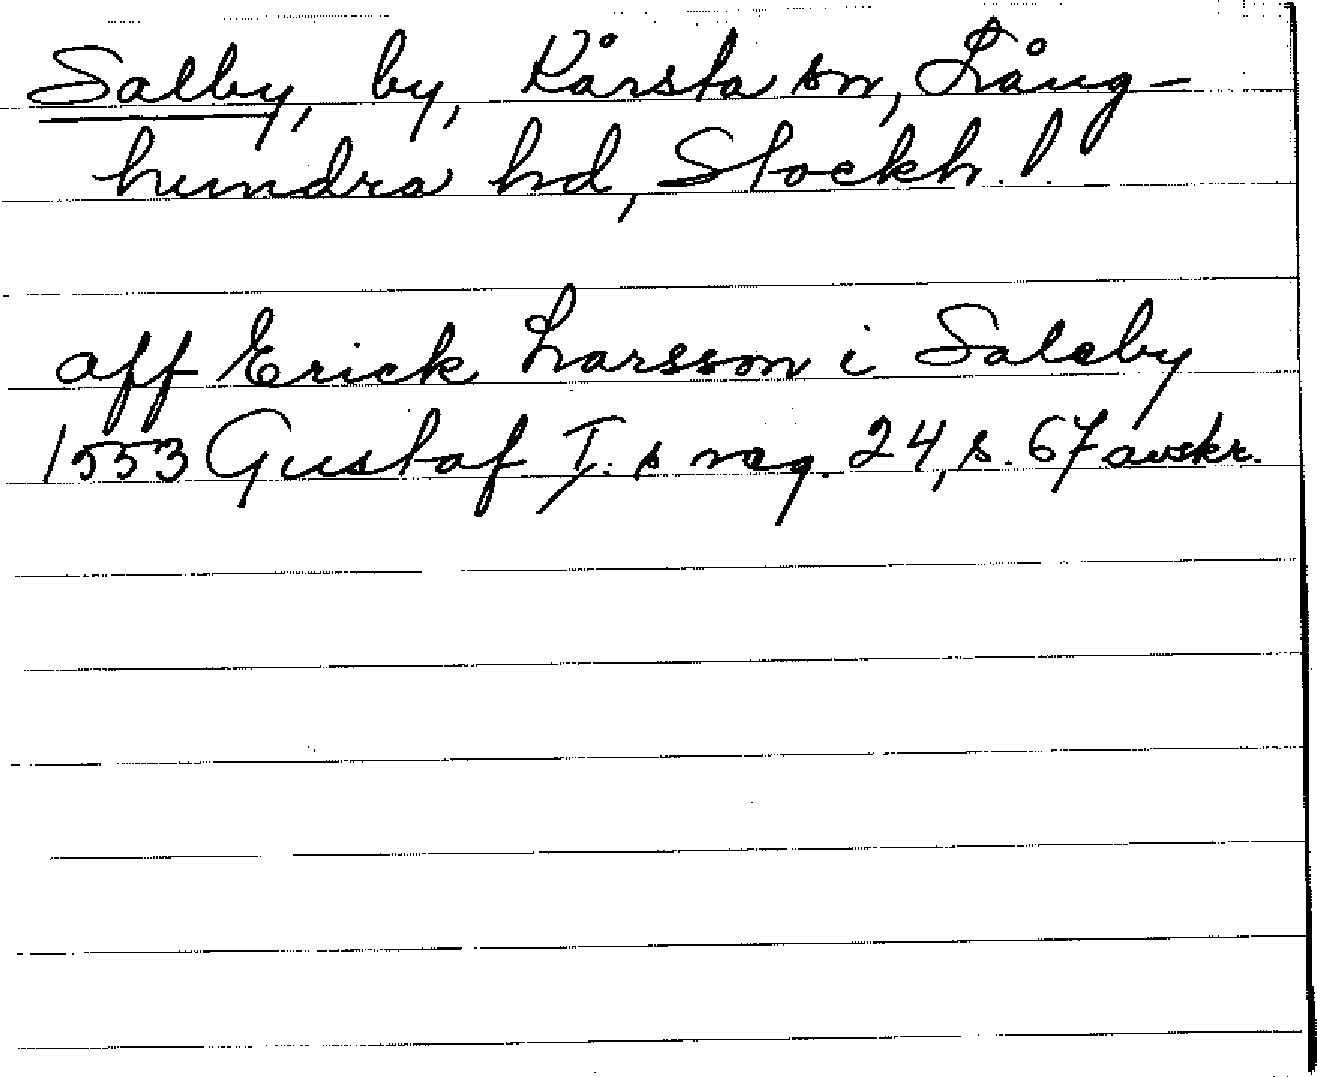 Salby, by, Kårsta sn, Lång-
hundra hd, Stockh. l.
aff Erick Larsson i Saleby
1553 Gustaf I:s reg. 24, s. 67 avskr.